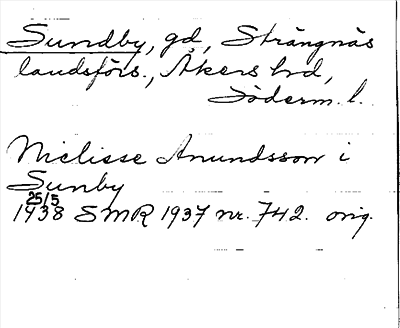 Sundby, gd, Strängnäs
landsförs., Åkers hd,
Söderm. l.
Niclisse Anundsson i
Sunby
25/5
1438 SMR 1937 nr. 742. orig.